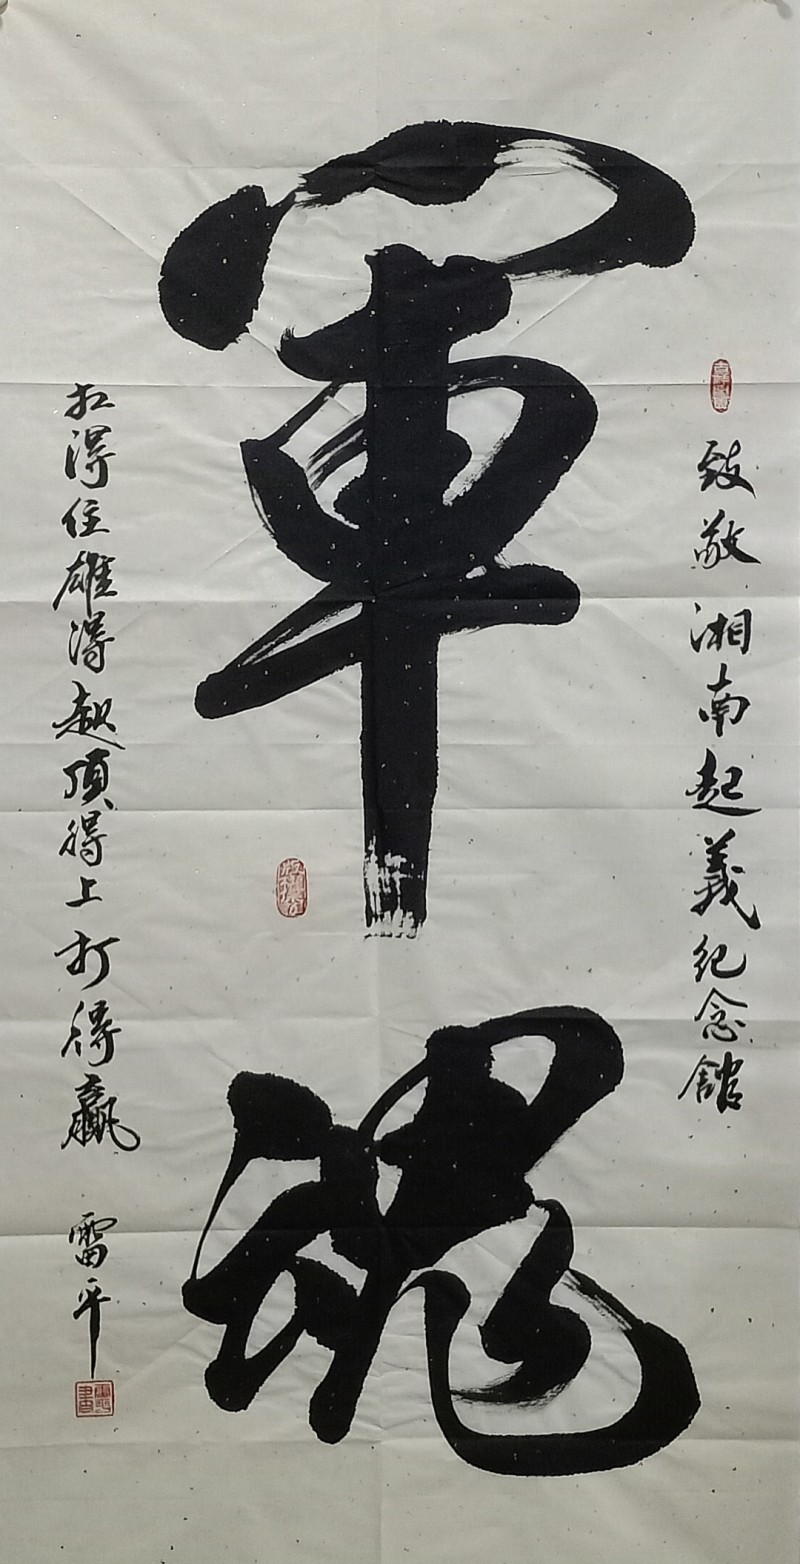 致敬湘南起義纪念館
軍魂
扛得住雄得起頂得上打得贏
雷平